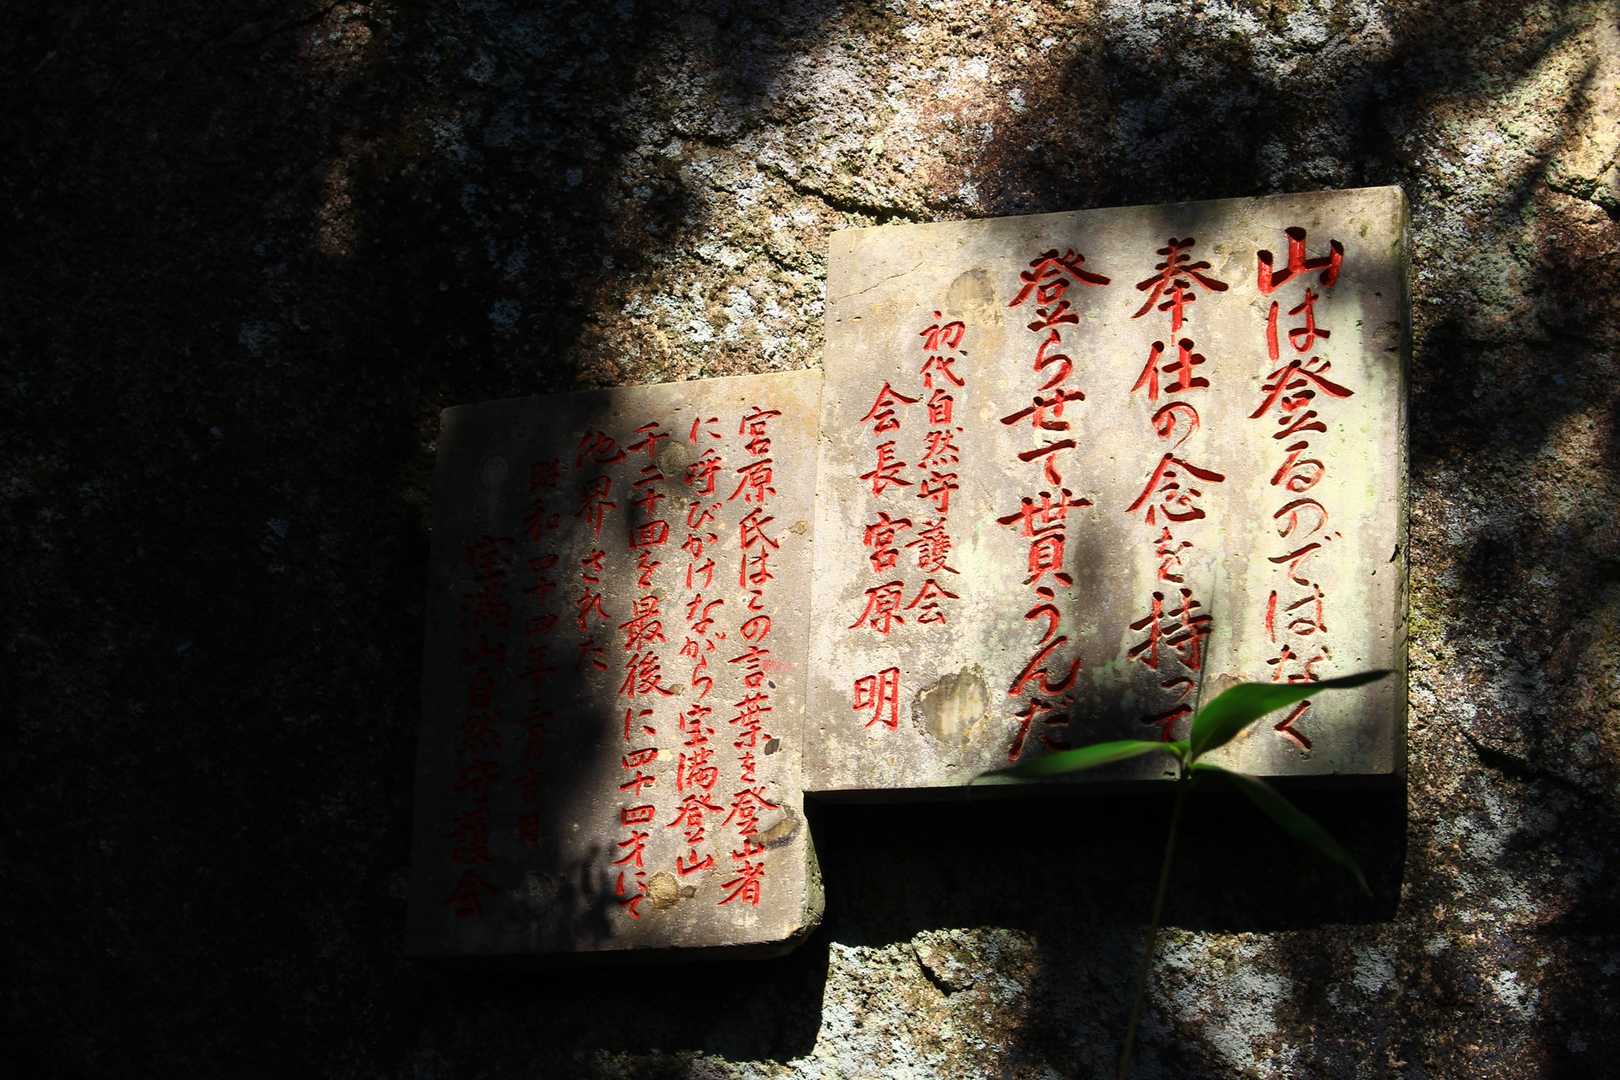 山は登るのではなく
奉仕の念を持って
登らせて貰うんだ
初代自然守護会
会長 宮原 明
宮原氏はこの言葉を登山者
に呼びかけながら宝満登山
千二十回を最後に四十四才にて
他界された
昭和四十四年三月 日
宝満山自然守護会